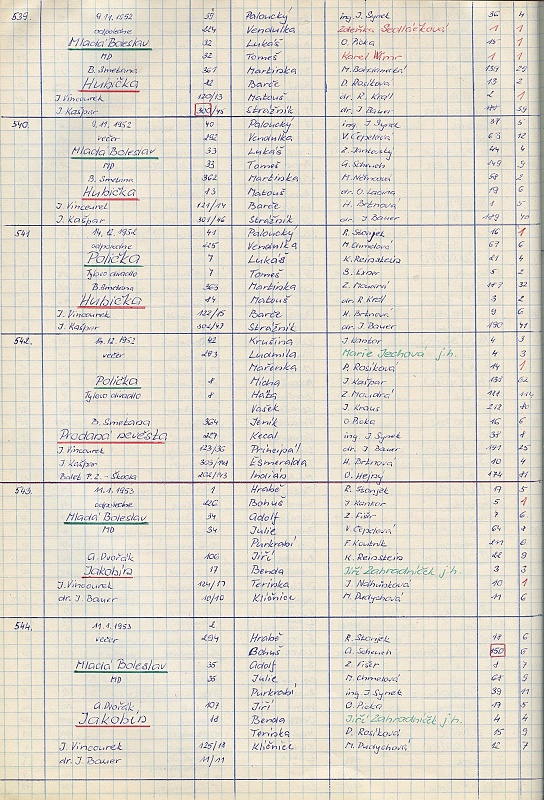 539. 9.11.1952 39 Paloucký ing. J. Synek 36 4
odpoledne 224 Vendulka Zdeňka Sedláčková 1 1
Mladá Boleslav 32 Lukáš O. Picka 15 1
MD 32 Tomeš Karel Wimr 1 1
B. Smetana 361 Martinka 29
Hubička 12 Barče D. Rosíková 13 2
J. Vincourek 120/13 Matouš dr. R. Krajl 2 1
J. Kašpar 300/45 Strážník dr. J. Bauer 39
540. 9.11.1952 40 Paloucký ing. J. Synek 37 5
večer 292 Vendulka V. Čepelová 63 12
Mladá Boleslav 33 Lukáš Z. Jankovský 44 4
MD 33 Tomeš G. Scheuch 149 9
B. Smetana 362 Martinka M. Němcová 58 2
Hubička 13 Matouš dr. O. Lacina 19 6
J. Vincourek 121/14 Barče H. Brtnová 1 5
J. Kašpar 301/46 Strážník dr. J. Bauer 40
541 14.12.1952 41 Paloucký R. Skonjek 16 1
odpoledne 225 Vendulka M. Chmelová 67 6
Polička 7 Lukáš K. Reinstein 21 4
Tylovo divadlo 7 Tomeš 5 2
B. Smetana 363 Martinka 32
Hubička 14 Matouš dr. R. Krajl 3 2
J. Vincourek 122/15 Barče H. Brtnová 9 6
J. Kašpar 302/47 Strážník dr. J. Bauer 190 41
542. 14.12.1952 42 Krušina J. Kantor 4 3
večer 293 Ludmila Marie Jechová j.h. 4 3
Mařenka D. Rosíková 14 1
Polička 8 Mícha J. Kašpar 62
Tylovo divadlo 8 Háta Z. Mocvidrá
Vašek J. Kraus
B. Smetana 364 Jeník O. Picka 16 6
Prodaná nevěsta 227 Kecal ing. J. Synek 38 1
J. Vincourek 123/36 Principál dr. J. Bauer 191 25
J. Kašpar Esmeralda H. Brtnová 10 4
Balet P. Z. - Škoda Indián O. Hejný 174
543. 11.1.1953 1 Hrabě R. Skonjek 17 5
odpoledne 226 Bohuš J. Kantor 5 1
Mladá Boleslav 34 Adolf Z. Fišer 7 6
MD 34 Julie V. Čepelová 64
Purkrabí F. Koutník
A. Dvořák 106 Jiří K. Reinstein 22 9
Jakobín 17 Benda Jiří Zahradníček j.h. 3 3
J. Vincourek 124/17 Terinka J. Nahunková 10 1
dr. J. Bauer 10/10 Klíčnice M. Dudychová 11 6
544. 11.1.1953 2
večer 294 Hrabě R. Skonjek 18 6
Bohuš G. Scheuch 150 6
Mladá Boleslav 35 Adolf Z. Fišer 8 7
MD 35 Julie M. Chmelová 68 9
Purkrabí ing. J. Synek 39 11
A. Dvořák 107 Jiří O. Picka 17 5
Jakobín 18 Benda Jiří Zahradníček j.h. 4 4
Terinka D. Rosíková 15 9
J. Vincourek 125/18 Klíčnice M. Dudychová 12 7
dr. J. Bauer 11/11